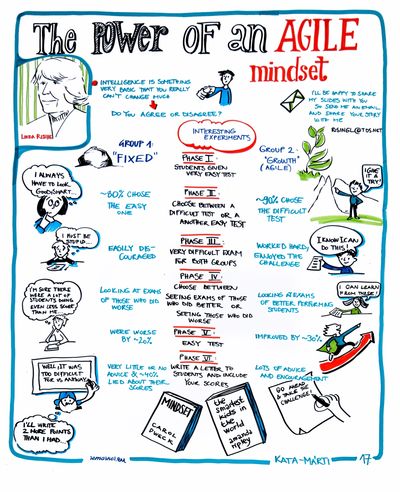 The POWER OF an AGILE
mindset
LINDA RISING
• INTELLIGENCE IS SOMETHING
VERY BASIC THAT YOU REALLY
CAN'T CHANGE MUCH
DO YOU AGREE OR DISAGREE?
I'LL BE HAPPY TO SHARE
MY SLIDES WITH YOU
SO SEND ME AN EMAIL
AND SHARE YOUR STORY
WITH ME
RISINGL@TDS.NET
INTERESTING
EXPERIMENTS
GROUP 1:
"FIXED"
GROUP 2:
"GROWTH"
(AGILE)
PHASE I:
STUDENTS GIVEN
VERY EASY TEST
I ALWAYS
HAVE TO LOOK
GOOD/SMART...
I GIVE
IT A
TRY!
~80% CHOSE
THE EASY
ONE
PHASE II:
CHOOSE BETWEEN A
DIFFICULT TEST OR A
ANOTHER EASY TEST
~90% CHOSE
THE DIFFICULT
TEST
I MUST BE
STUPID...
EASILY DIS-
COURAGED
PHASE III:
VERY DIFFICULT EXAM
FOR BOTH GROUPS
WORKED HARD,
ENJOYED THE
CHALLENGE
I KNOW I CAN
DO THIS!
I'M SURE THERE
WERE A LOT OF
STUDENTS DOING
EVEN LESS SOME
THAN ME...
LOOKING AT EXAMS
OF THOSE WHO DID
WORSE
PHASE IV:
CHOOSE BETWEEN
SEEING EXAMS OF THOSE
WHO DID BETTER OR
SEEING THOSE WHO DID
WORSE
LOOKING AT EXAMS
OF BETTER PERFORMING
STUDENTS
I CAN LEARN
FROM THESE!
WERE WORSE
BY ~20%
PHASE V:
EASY TEST
IMPROVED BY ~30%
WELL, IT WAS
TOO DIFFICULT
FOR US ANYWAY...
VERY LITTLE OR NO
ADVICE & ~40%
LIED ABOUT THEIR
SCORES
PHASE VI:
WRITE A LETTER TO
STUDENTS AND INCLUDE
YOUR SCORES
LOTS OF ADVICE
AND ENCOURAGEMENT
GO AHEAD
& TAKE THE
CHALLENGE!
I'LL WRITE
2 MORE POINTS
THAN I HAD...
MINDSET
CAROL
DWECK
the
smartest
kids in
the
world
amanda
ripley
KATA-MÁRTI
17